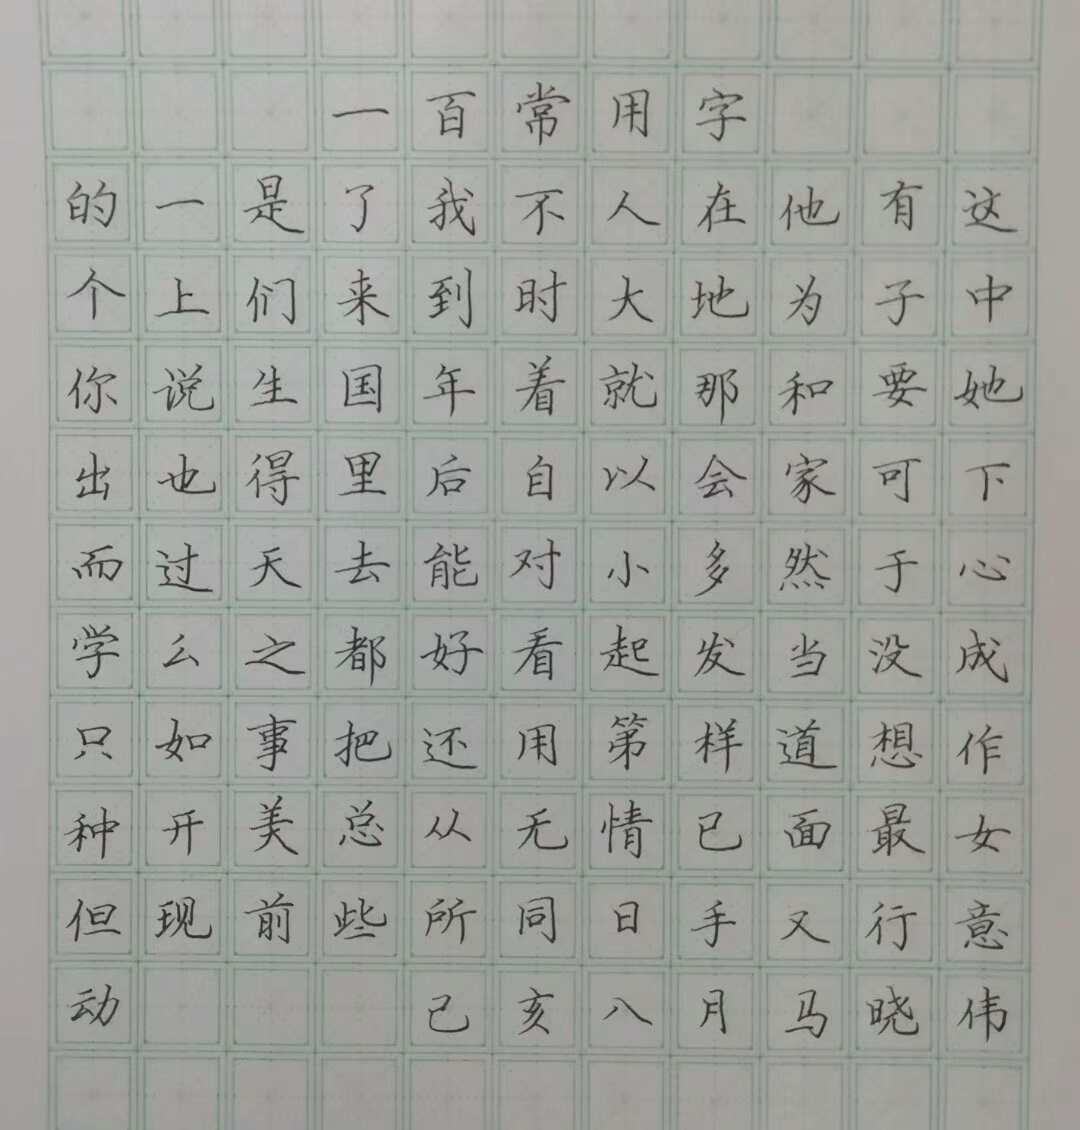 一百常用字
的一是了我不人在他有这
个上们来到时大地为子中
你说生国年着就那和要她
出也得里后自以会家可下
而过天去能对小多然于心
学么之都好看起发当没成
只如事把还用第样道想作
种开美总从无情已面最女
但现前些所同日手又行意
动 己亥八月马晓伟